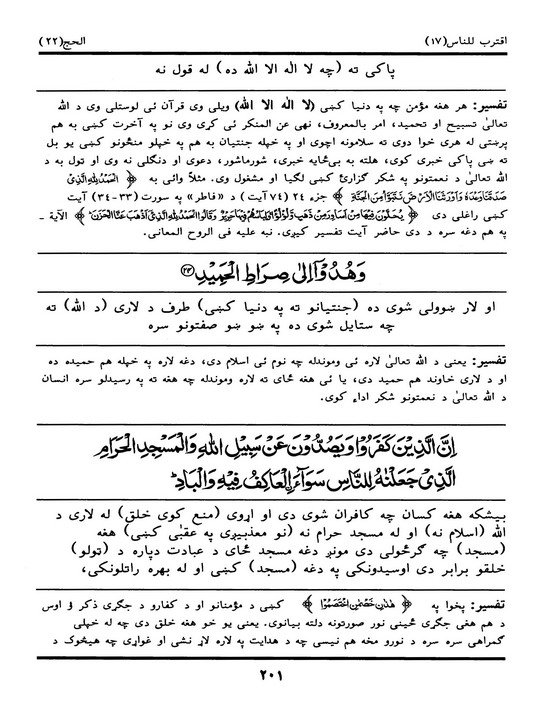 اقترب للناس(۱۷) الحج(۲۲)
پاکی ته (چه لا اله الا الله ده) له قول نه
تفسیر: هر هغه مؤمن چه په دنیا کښی (لا اله الا الله) ویلی وی قرآن ئی لوستلی وی د الله
تعالیٰ تسبیح او تحمید، امر بالمعروف، نهی عن المنکر ئی کړی وی نو په آخرت کښی به هم
پرښتی له هری خوا دوی ته سلامونه اچوی او په خپله جنتیان به هم په خپلو منځونو کښی یو بل
ته ښی پاکی خبری کوی، هلته به بی‌ځایه خبری، شورماشور، دعوی او دنگلی نه وی او ټول به د
الله تعالیٰ د نعمتونو په شکر گزارئ کښی لگیا او مشغول وی. مثلاً وائی به ﴿ اَلْحَمْدُ لِلّٰهِ الَّذِیْ
صَدَقَنَا وَعْدَهٗ وَاَوْرَثَنَا الْاَرْضَ نَتَبَوَّاُ مِنَ الْجَنَّةِ ﴾ جزء ۲٤ (۷٤ آیت) د «فاطر» په سورت (۳۳-۳٤) آیت
کښی راغلی دی ﴿ یُحَلَّوْنَ فِیْهَا مِنْ اَسَاوِرَ مِنْ ذَهَبٍ وَّلُؤْلُؤًا وَلِبَاسُهُمْ فِیْهَا حَرِیْرٌ وَقَالُوا الْحَمْدُ لِلّٰهِ الَّذِیْ اَذْهَبَ عَنَّا الْحَزَنَ ﴾ الآیة -
په هم دغه سره د دی حاضر آیت تفسیر کیږی. نبه علیه فی الروح المعانی.
وَهُدُوْٓا اِلٰی صِرَاطِ الْحَمِیْدِ ﴿۲۴﴾
او لار ښوولی شوی ده (جنتیانو ته په دنیا کښی) طرف د لاری (د الله) ته
چه ستایل شوی ده په ښو ښو صفتونو سره
تفسیر: یعنی د الله تعالیٰ لاره ئی وموندله چه نوم ئی اسلام دی، دغه لاره په خپله هم حمیده ده
او د لاری خاوند هم حمید دی، یا ئی هغه ځای ته لاره وموندله چه هغه ته په رسیدلو سره انسان
د الله تعالیٰ د نعمتونو شکر اداء کوی.
اِنَّ الَّذِیْنَ کَفَرُوْا وَیَصُدُّوْنَ عَنْ سَبِیْلِ اللهِ وَالْمَسْجِدِ الْحَرَامِ
الَّذِیْ جَعَلْنٰهُ لِلنَّاسِ سَوَآءَ ۨالْعَاکِفُ فِیْهِ وَالْبَادِ ؕ
بیشکه هغه کسان چه کافران شوی دی او اړوی (منع کوی خلق) له لاری د
الله (اسلام نه) او له مسجد حرام نه (نو معذبیږی په عقبیٰ کښی) هغه
(مسجد) چه گرځولی دی مونږ دغه مسجد ځای د عبادت دپاره د (ټولو)
خلقو برابر دی اوسیدونکی په دغه (مسجد) کښی او له بهره راتلونکی،
تفسیر: پخوا په ﴿ هٰذٰنِ خَصْمٰنِ اخْتَصَمُوْا ﴾ کښی د مؤمنانو او د کفارو د جگړی ذکر ؤ اوس
د هم هغی جگړی ځینی نور صورتونه دلته بیانوی. یعنی یو خو هغه خلق دی چه له خپلی
گمراهی سره سره د نورو مخه هم نیسی چه د هدایت په لاره لاړ نشی او غواړی چه هیڅوک د
۲۰۱